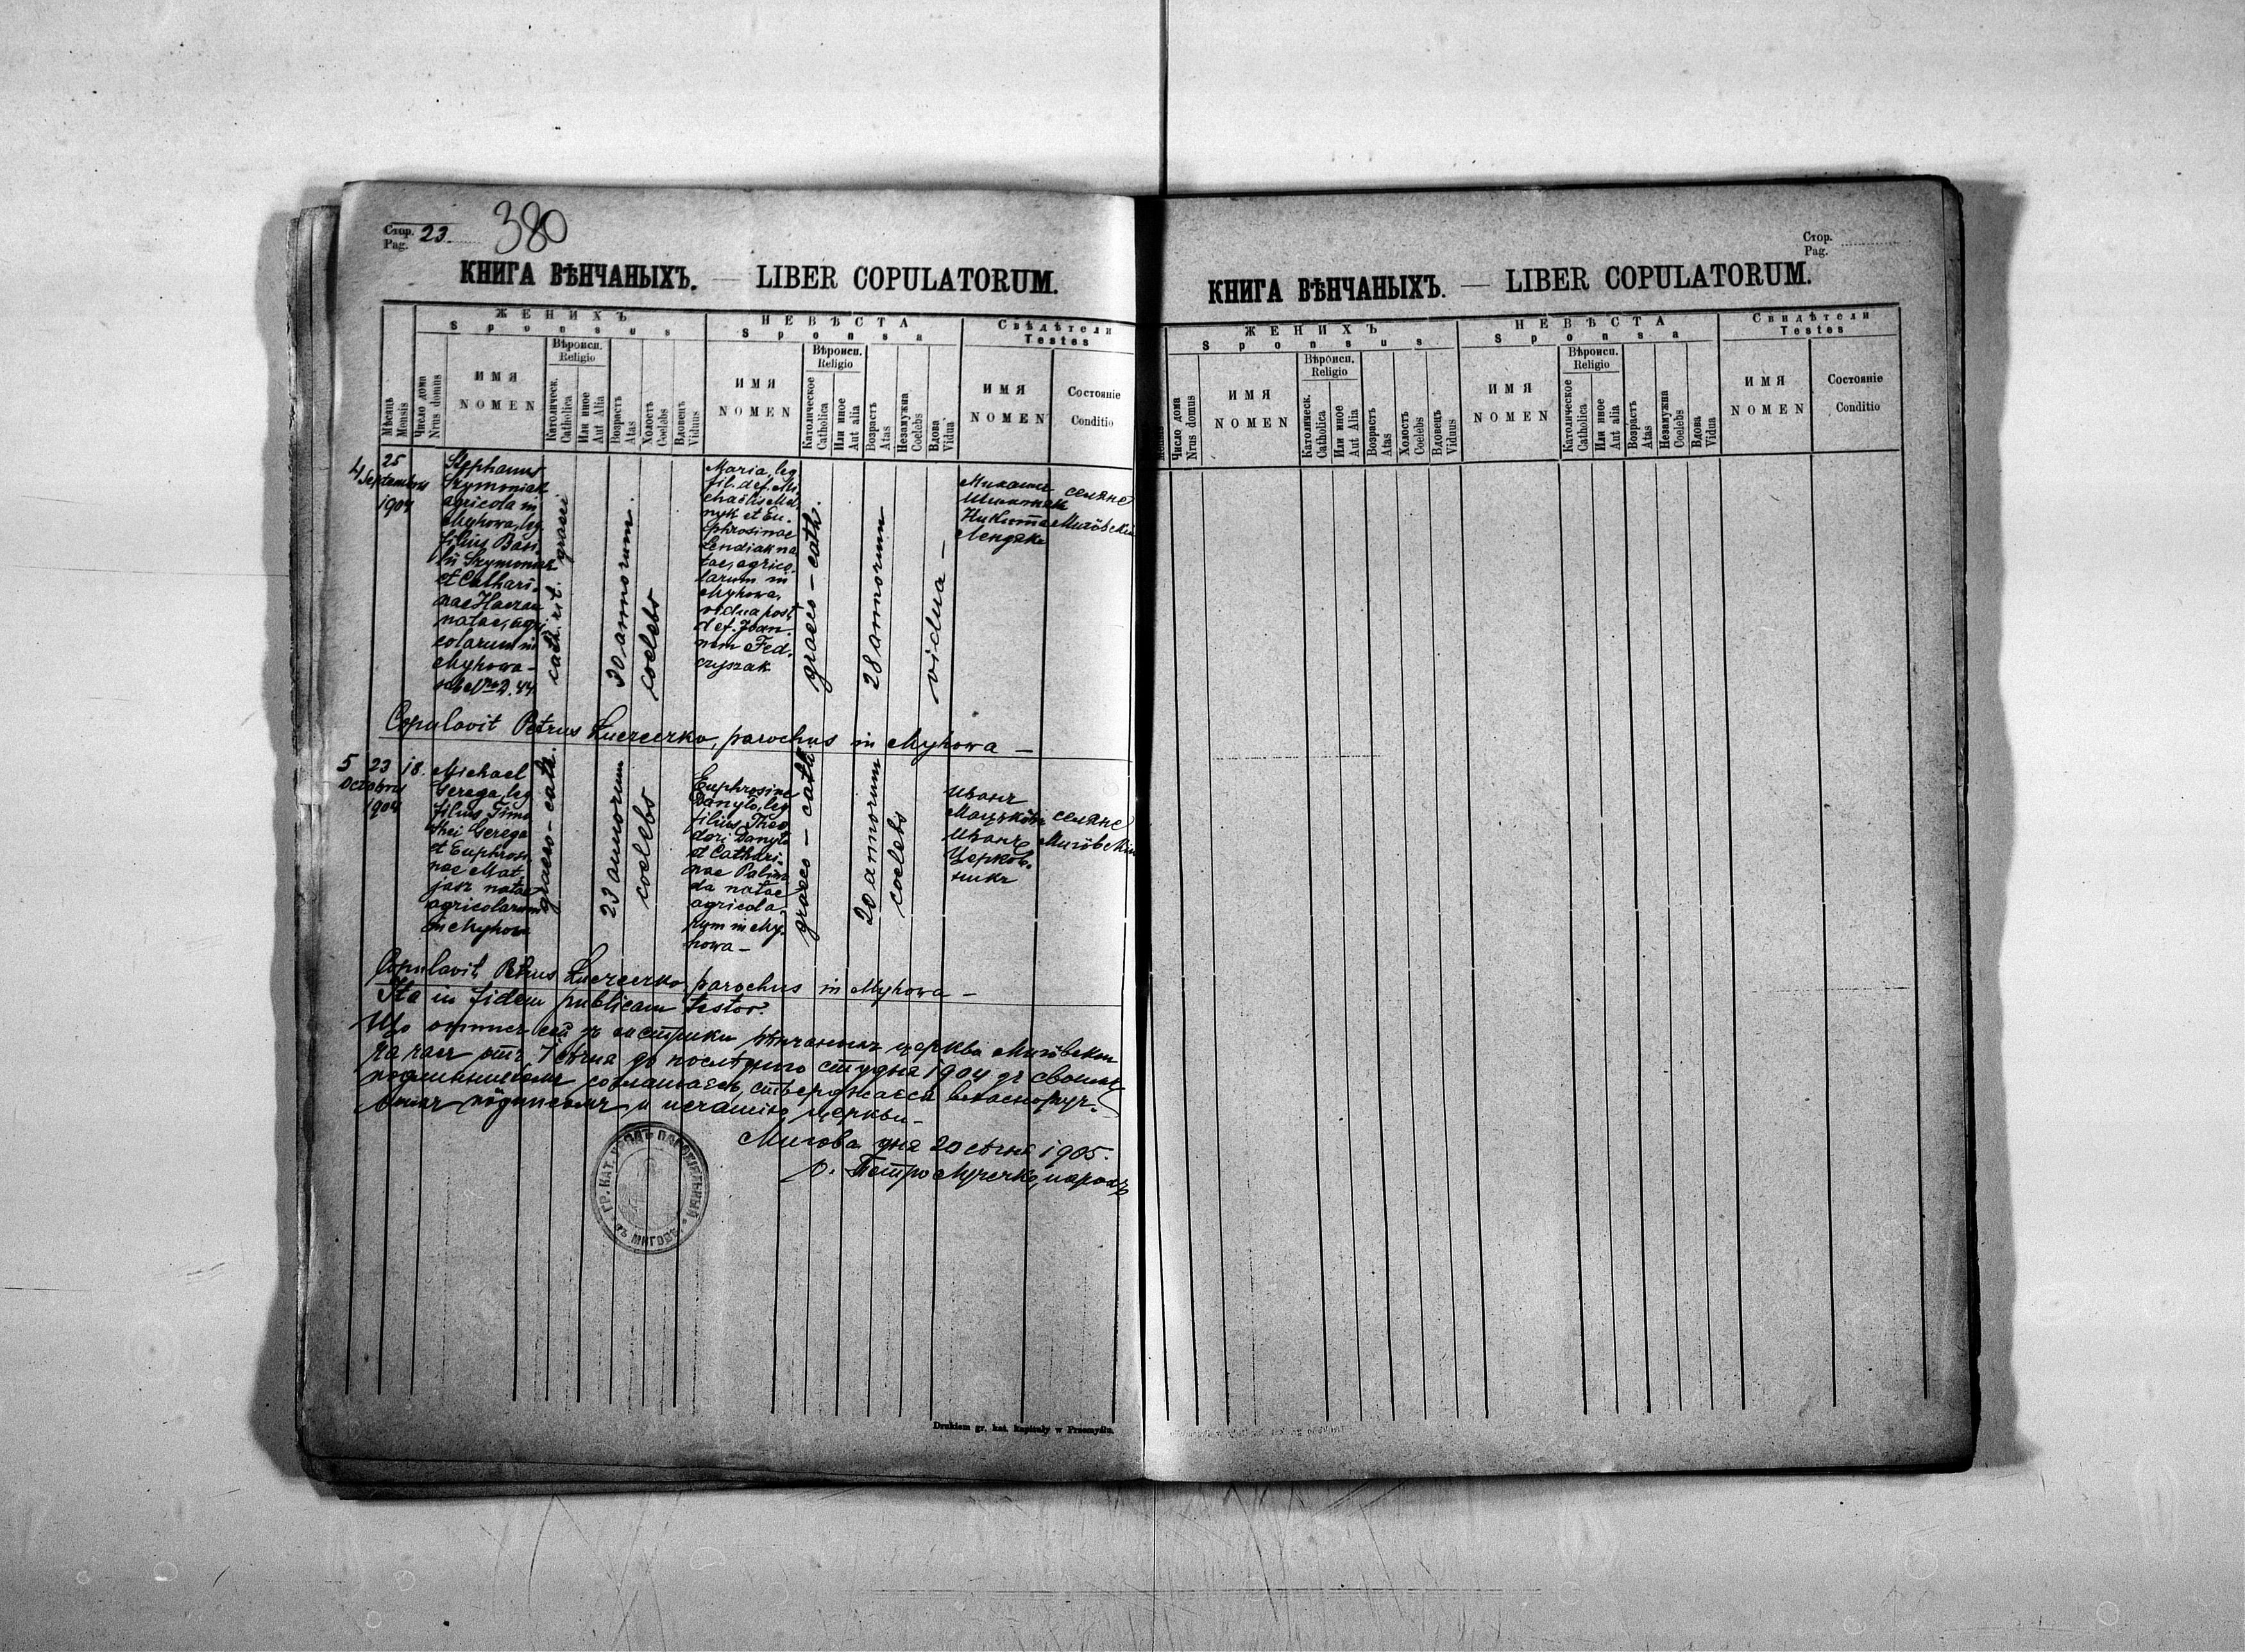 Стор. 23.
Pag.
380
КНИГА ВѢНЧАНЫХЪ. — LIBER COPULATORUM.
Мѣсяць
Mensis
Число дома
Nrus domus
ЖЕНИХЪ
Sponsus
ИМЯ
NOMEN
Вѣроисп.
Religio
Католическ.
Catholica
Или иное
Aut Alia
Возрастъ
Atas
Холостъ
Coelebs
Вдовецъ
Viduus
НЕВѢСТА
Sponsa
ИМЯ
NOMEN
Вѣроисп.
Religio
Католическое
Catholica
Или иное
Aut alia
Возрастъ
Atas
Незамужна
Coelebs
Вдова
Vidua
Свѣдѣтели
Testes
ИМЯ
NOMEN
Состояніе
Conditio
4
25
Septembris
1904
Stephanus
Szymoniak
agricola in
Myhowa, leg.
filius Basi-
lii Szymoniak
et Cathari-
nae
natae, agri
colarum in
Myhowa -
sub Nro 2. 44
cath. rit. graeci.
30 annorum.
coelebs
Maria, leg
fil. def. Mi
chaëlis Mel
nyk et Eu-
phrosinae
Lendiak na
tae, agrico-
larum in
Myhowa,
vidua post
def. Joan-
nem Fed-
czyszak
graeco - cath.
28 annorum
vidua -
Михаилъ
Шимонякъ
Никита
Лендякъ
селяне
Миговскіи
Copulavit Petrus Łuczeczko, parochus in Myhowa -
5
23
Octobris
1904
18.
Michael
Gerega, leg
filius Timo
thei Gerega
et Euphrosi
nae Mat
jasz natae
agricolarum
in Myhowa
graeco - cath.
23 annorum
coelebs
Euphrosine
Danylo, leg
filius Theo
dori Danylo
et Cathari-
nae
da natae
agricola
rum in My-
howa -
graeco - cath.
20 annorum
coelebs
Иванъ
Иванъ
Церков-
никъ
селяне
Миговскіи
Copulavit Petrus Łuczeczko parochus in Myhowa -
Ita in fidem publicam testor.
Що отписъ сей зъ метрики вѣнчаныхъ церкви Миговскои
за часъ отъ 1 сѣчня до послѣдного студня 1904 зъ своимъ
печатію церкви -
Мигова дня 20 сѣчня 1905.
о. Петро Лучечко, парохъ
ГР. КАТ. УРЯДЪ ПАРОХІЯЛЬНЫЙ
ВЪ МИГОВѢ
Drukiem gr. kat. kapituły w Przemyślu.
Стор.
Pag.
КНИГА ВѢНЧАНЫХЪ. — LIBER COPULATORUM.
Число дома
Nrus domus
ЖЕНИХЪ
Sponsus
ИМЯ
NOMEN
Вѣроисп.
Religio
Католическ.
Catholica
Или иное
Aut Alia
Возрастъ
Atas
Холостъ
Coelebs
Вдовецъ
Viduus
НЕВѢСТА
Sponsa
ИМЯ
NOMEN
Вѣроисп.
Religio
Католическое
Catholica
Или иное
Aut alia
Возрастъ
Atas
Незамужна
Coelebs
Вдова
Vidua
Свидѣтели
Testes
ИМЯ
NOMEN
Состояніе
Conditio